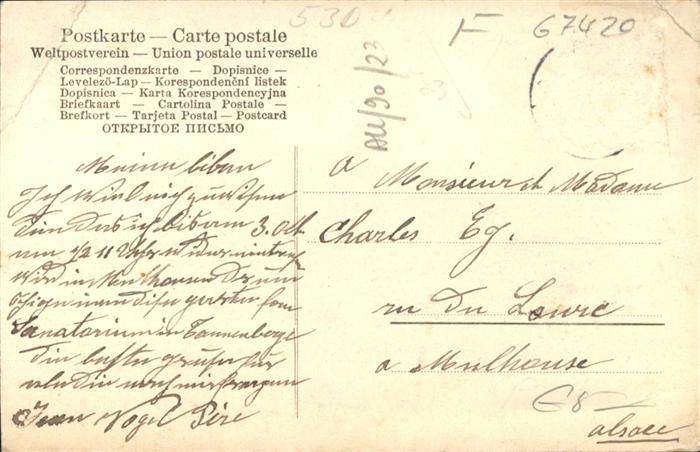 530
F
67420
AU/90/23
Postkarte — Carte postale
Weltpostverein — Union postale universelle
Correspondenzkarte — Dopisnice —
Levelezö-Lap — Korespondenční listek
Dopisnica — Karta Korespondencyjna
Briefkaart — Cartolina Postale —
Brefkort — Tarjeta Postal — Postcard
ОТКРЫТОЕ ПИСЬМО
Meine lieben
Ich will
das ich bis am 3. Okt
um 1/2 11 Uhr wieder
wird in Mulhausen
Sanatorium in Tannenberge
die besten grüsse für
alle die nach mir fragen
Jean Vogel Père
a
Monsieur et Madame
Charles Eg.
ru du Louvre
a Mulhouse
E8 —
alsace